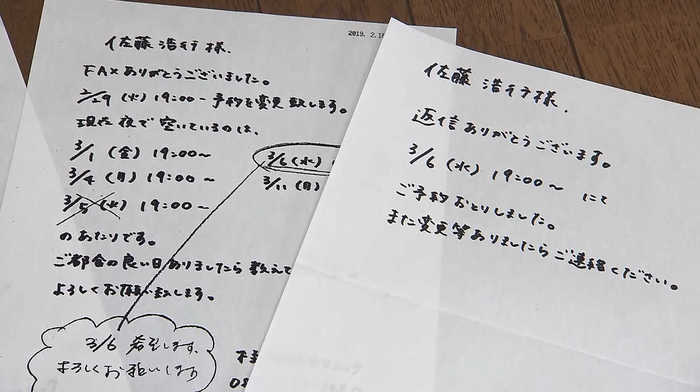 2019. 2.18
佐藤 浩子 様.
FAXありがとうございました。
2/19 (火) 19:00- 予約を変更 致します。
現在 夜で 空いているのは、
3/1 (金) 19:00〜
3/6 (水)
3/4 (月) 19:00〜
3/11 (月)
3/5 (火) 19:00〜
のあたりです。
ご都合の良い日ありましたら 教えて
よろしくお願い致します。
3/6 希望します。
よろしくお願いします
佐藤 浩子様.
返信ありがとうございます。
3/6 (水) 19:00〜 にて
ご予約おとりしました。
また変更等ありましたらご連絡ください。